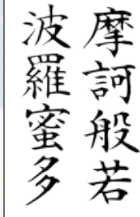 摩訶般若
波羅蜜多